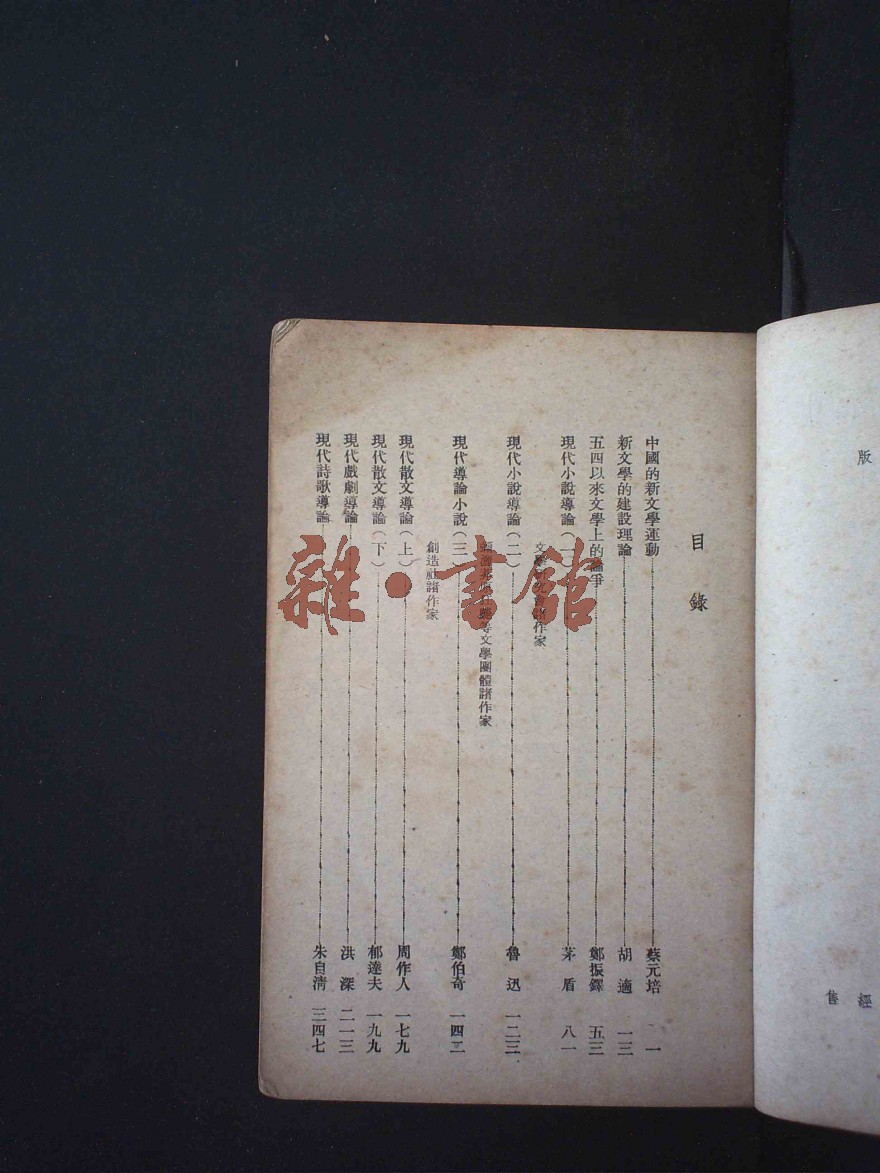 版
經
售
目錄
中國的新文學運動 蔡元培 一
新文學的建設理論 胡適 一三
五四以來文學上的論爭 鄭振鐸 五三
現代小說導論(一) 茅盾 八一
文學研究會諸作家
現代小說導論(二) 魯迅 一二三
等文學團體諸作家
現代導論小說(三) 鄭伯奇 一四二
創造社諸作家
現代散文導論(上) 周作人 一七九
現代散文導論(下) 郁達夫 一九九
現代戲劇導論 洪深 二一三
現代詩歌導論 朱自清 三四七
雜·書館